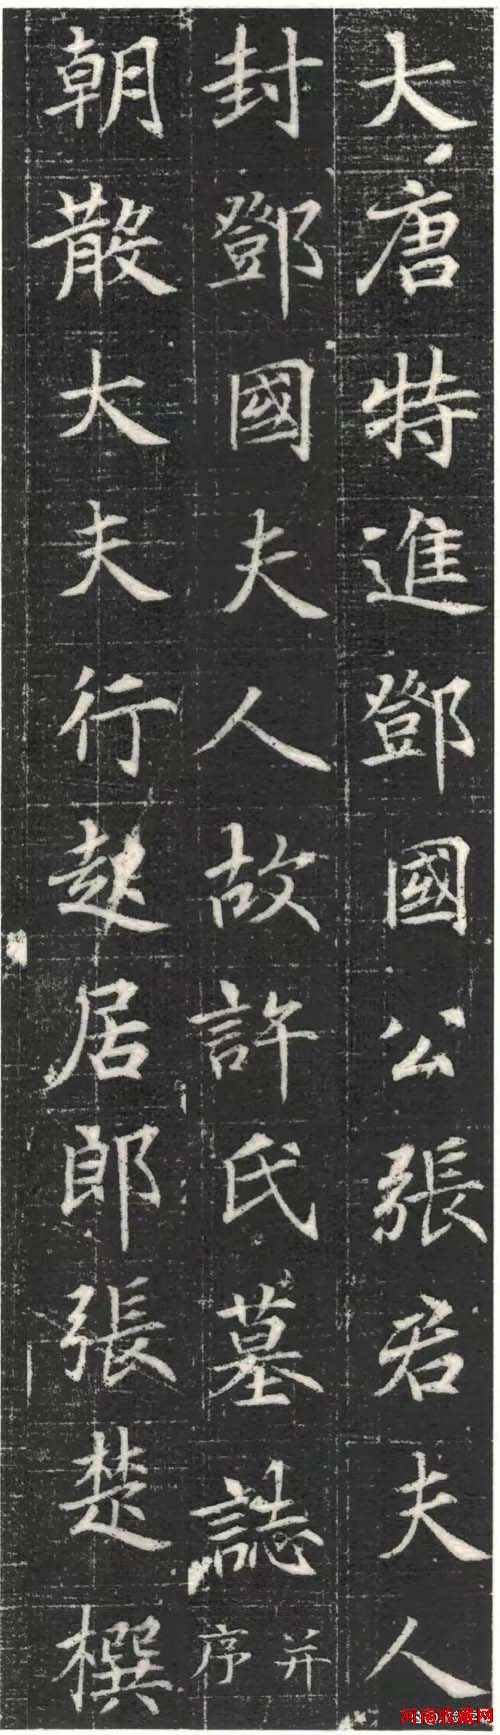 大唐特進鄧國公張君夫人
封鄧國夫人故許氏墓誌并序
朝散大夫行起居郎張楚撰
河南收藏网